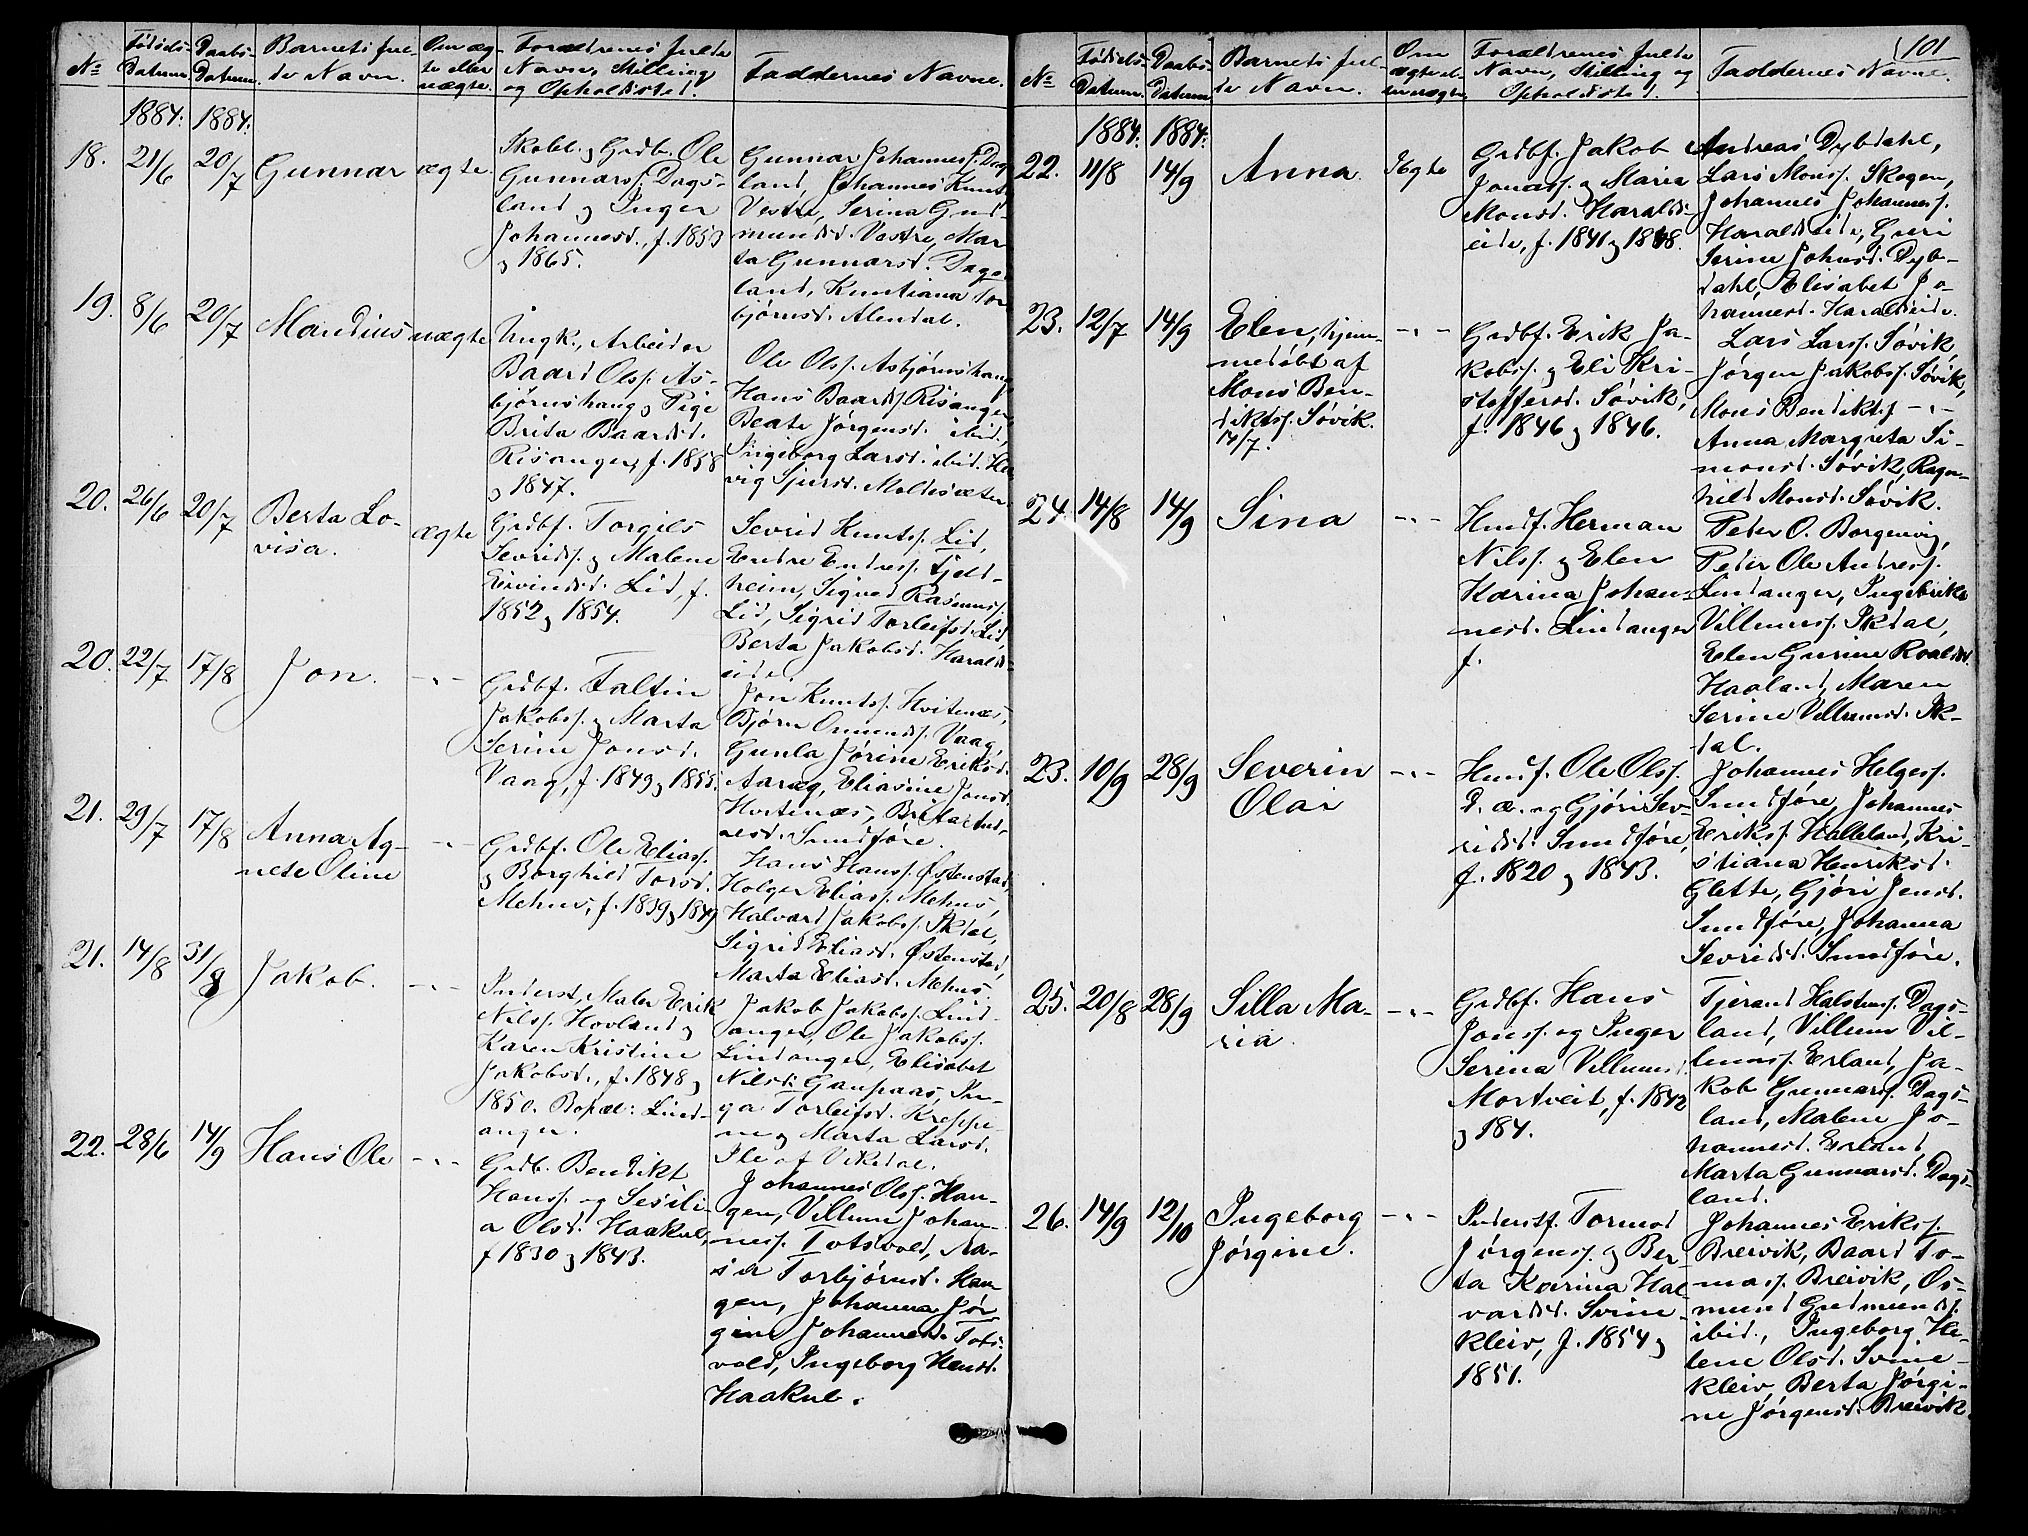 No
Fødsels-
Datum.
Daabs-
Datum.
Barnets ful-
de Navn.
Om æg-
te eller
uægte.
Forældrenes fulde
Navn, Stilling
og Opholdssted.
Faddernes Navne.
1884. 1884.
18. 21/6 20/7 Gunnar ægte
Skoll. og Grdb. Ole
Gunnarss. Dags-
land og Inger
Johannesd., f. 1859
og 1865.
Gunnar Johanness. Dags-
land, Johannes Knuts.
Vestre, Serina Gud-
mundsd. Vestre, Mar-
ta Gunnarsd. Dags-
land, Knutiana Tor-
bjørnsd. Alendal.
19. 8/6 20/7 Mandius uægte
Ungk., Arbeider
Baard Olss. As-
bjørnshaug og Pige
Brita Baardsd.
Risanger, f. 1858
og 1847.
Ole Olss. Asbjørnshaug,
Hans Baards. Risanger,
Beate Jørgensd. ibid.,
Ingeborg Larsd. ibid.
Sjursd. Moldesæter
20. 26/6 20/7 Berta Lo-
visa. ægte
Grdbf. Torgils
Sevrids. og Malene
Eivindsd. Lid, f.
1852 og 1854.
Sevrid Knuts. Lid,
Endre Endress. Fjeld-
heim, Sigvard Rasmuss.
Lid, Sigrid Torleifsd. Lid,
Berta Jakobsd. Haralds-
eide.
20. 22/7 17/8 Jon. -"-
Grdbf. Faltin
Jakobss. og Marta
Serine Jonsd.
Vaag, f. 1849 og 1855.
Jon Knutss. Hvitenæs,
Bjørn Ommunds. Vaag,
Gunla Jørine Eriksd.
Aarøg, Eliasine Jonsd.
Hvitenæs, Brita And-
resd. Sundføre.
21. 29/7 17/8 Anna Ag-
nete Oline -"-
Grdbf. Ole Eliass.
og Borghild Torsd.
Mehus, f. 1839 og 1849
Hans Hanss. Østenstad,
Holger Eliass. Mehus,
Halvard Jakobss. Ikdal,
Sigrid Eliasd. Østenstad,
Marta Eliasd. Mehus.
21. 14/8 31/8 Jakob. -"-
Inderst, Maler Erik
Nilss. Hovland og
Karen Kristine
Jakobsd., f. 1848 og
1850. Bopæl: Lind-
anger.
Jakob Jakobss. Lind-
anger, Ole Jakobss.
Lindanger, Elisabet
Nilsd. Gaupaas, In-
ga Torleifsd. Kreppe-
ne og Marta Larsd.
Ile af Vikedal.
22. 28/6 14/9 Hans Ole -"-
Grdb. Bendikt
Hanss. og Sesili-
a Olsd. Haakul,
f 1830 og 1843.
Johannes Olss. Hau-
gen, Villum Johan-
ness. Totsvold, Aa-
sa Torbjørnsd. Hau-
gen, Johanna Jør-
gine Johannesd. Tots-
vold, Ingeborg Hansd.
Haakul.
101
No
Fødsels-
Datum.
Daabs-
Datum.
Barnets ful-
de Navn.
Om
ægte el-
ler uægte.
Forældrenes fulde
Navn, Stilling og
Opholdssted.
Faddernes Navne.
1884. 1884.
22. 11/8 14/9 Anna. Ægte
Grdbf. Jakob
Jonass. og Maria
Monsd. Haralds-
eide, f. 1841 og 1848.
Andreas Dybdahl,
Lars Monss. Skogen,
Johannes Johanness.
Haraldseide, Guri
Serine Johnsd. Dyb-
dahl, Elisabet Jo-
hannesd. Haraldseide.
23. 12/7 14/9 Elen, hjem-
medøbt af
Mons Ben-
diktss. Søvik.
14/7. -"-
Grdbf. Erik Ja-
kobss. og Eli Kri-
stoffersd. Søvik,
f. 1846 og 1846.
Lars Larss. Søvik,
Jørgen Jakobss. Søvik,
Mons Bendiktss. -"-
Anna Margreta Si-
monsd. Søvik, Ragn-
hild Monsd. Søvik.
24. 14/8 14/9 Sina -"-
Husdf. Herman
Nilss. og Elen
Karina Johan-
nesd. Lindanger
f.
Peder O. Borgenvig,
Peder Ole Andress.
Lindanger, Ingebrikt
Villumss. Ikdal,
Elen Gurine Roaldsd.
Haaland, Maren
Serine Villumsd. Ik-
dal.
23. 10/9 28/9 Severin
Olai -"-
Husf. Ole Olss.
d. æ. og Gjøri Sev-
ridsd. Sundføre,
f. 1820 og 1843.
Johannes Helgess.
Sundføre, Johannes
Erikss. Halleland, Kri-
stiana Henriksd.
Glette, Gjøri Jensd.
Sundføre, Johanna
Sevridsd. Sundføre.
25. 20/8 28/9 Silla Ma-
ria. -"-
Grdbf. Hans
Jonss. og Inger
Serina Villumsd.
Mortveit, f. 1842
og 184.
Tjerand Halstenss. Dags-
land, Villum Vil-
lumss. Erland, Ja-
kob Gunnarss. Dags-
land, Malene Jo-
hannesd. Erland,
Marta Gunnarsd. Dags-
land.
26. 14/9 12/10 Ingeborg
Jørgine. -"-
Inderstf. Tormod
Jørgenss. og Ber-
ta Karina Hal-
vardsd. Svine-
kleiv, f. 1854 og
1851.
Johannes Erikss.
Breivik, Baard To-
mass. Breivik, Os-
mund Gudmunds.
ibid., Ingeborg He-
lene Olsd. Svine-
kleiv, Berta Jørgi-
ne Jørgensd. Breivik.